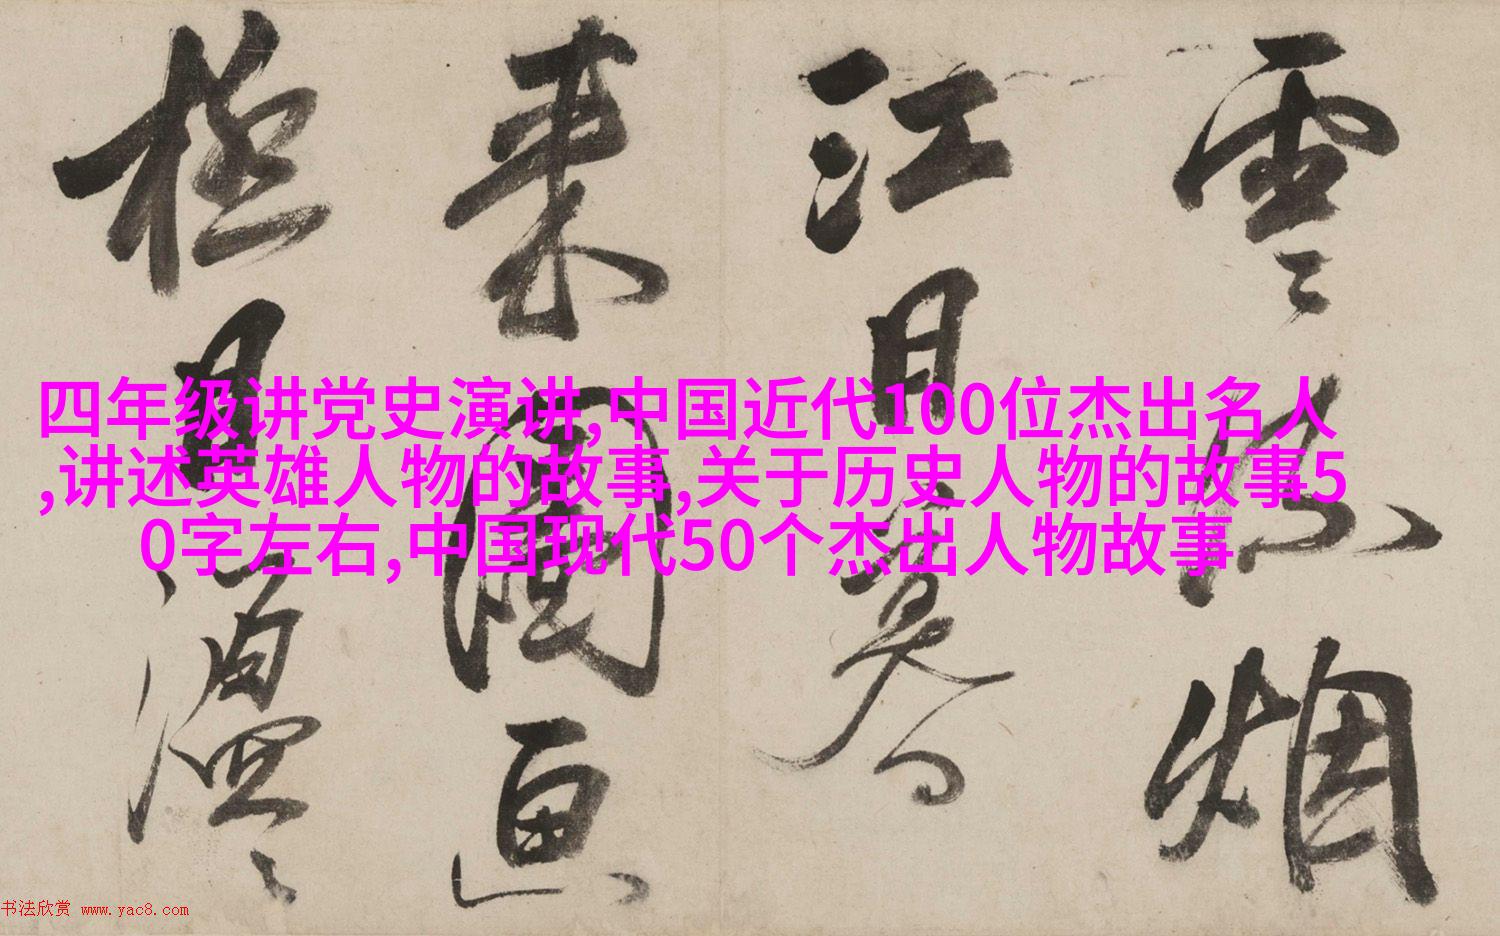 雲〻烟
江日暮
来圖画
極目
四年级讲党史演讲,中国近代100位杰出名人
,讲述英雄人物的故事,关于历史人物的故事5
0字左右,中国现代50个杰出人物故事
书法欣赏 www.yac8.com